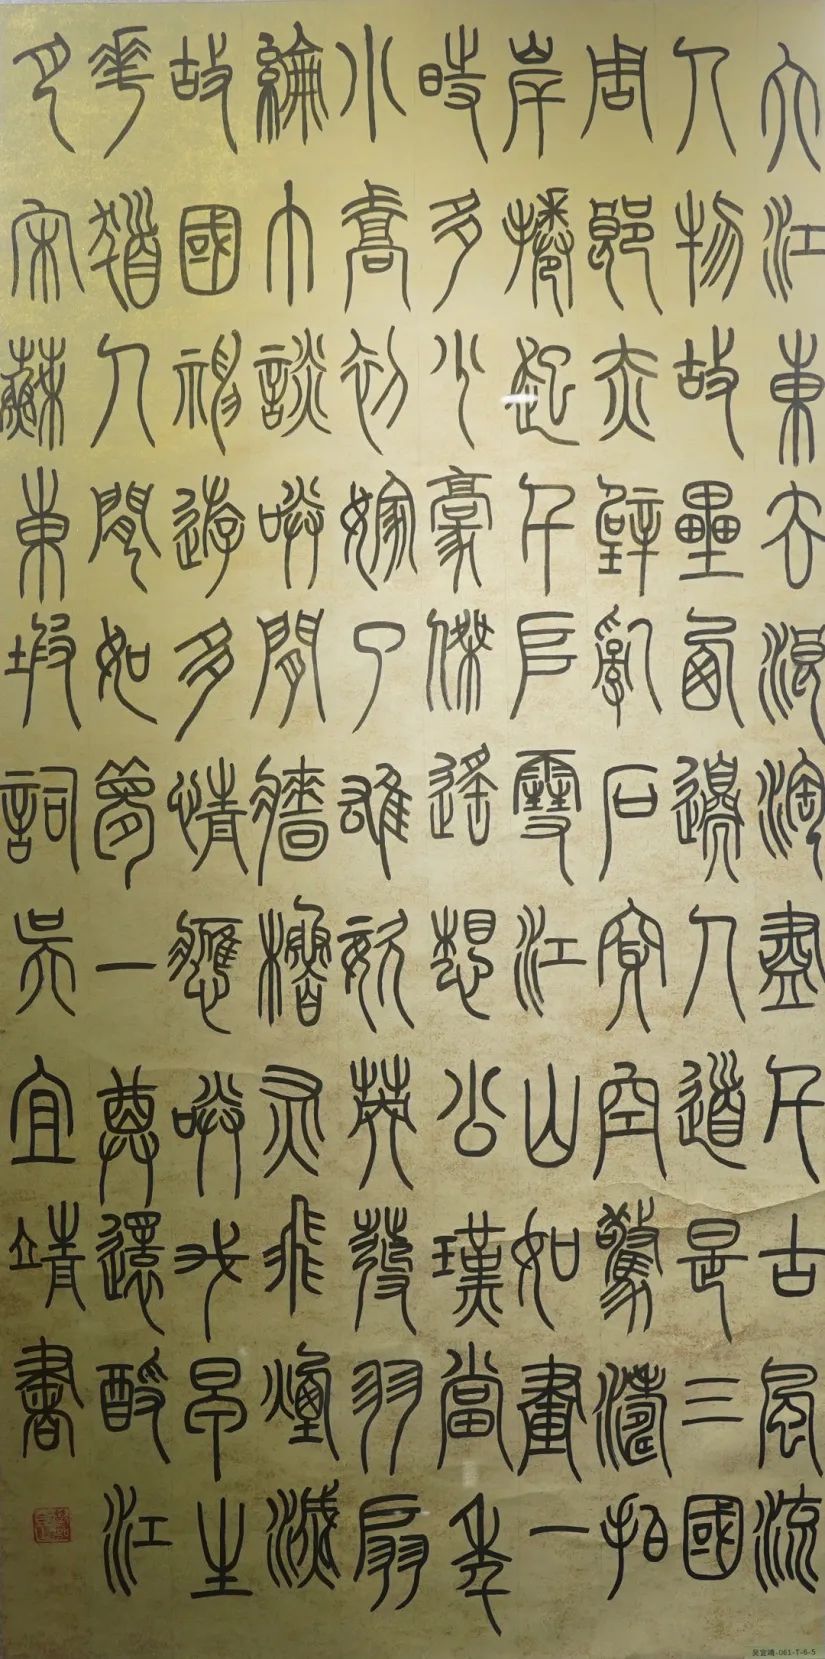 大江東去浪淘盡千古風流
人物故壘西邊人道是三國
周郎赤壁亂石穿空驚濤拍
岸捲起千堆雪江山如畫一
時多少豪傑遙想公瑾當年
小喬初嫁了雄姿英發羽扇
綸巾談咲間檣櫓灰飛煙滅
故國神遊多情應咲我早生
華髮人間如夢一尊還酹江
月宋蘇東坡詞吳宜靖書
吴宜靖-061-T-6-5